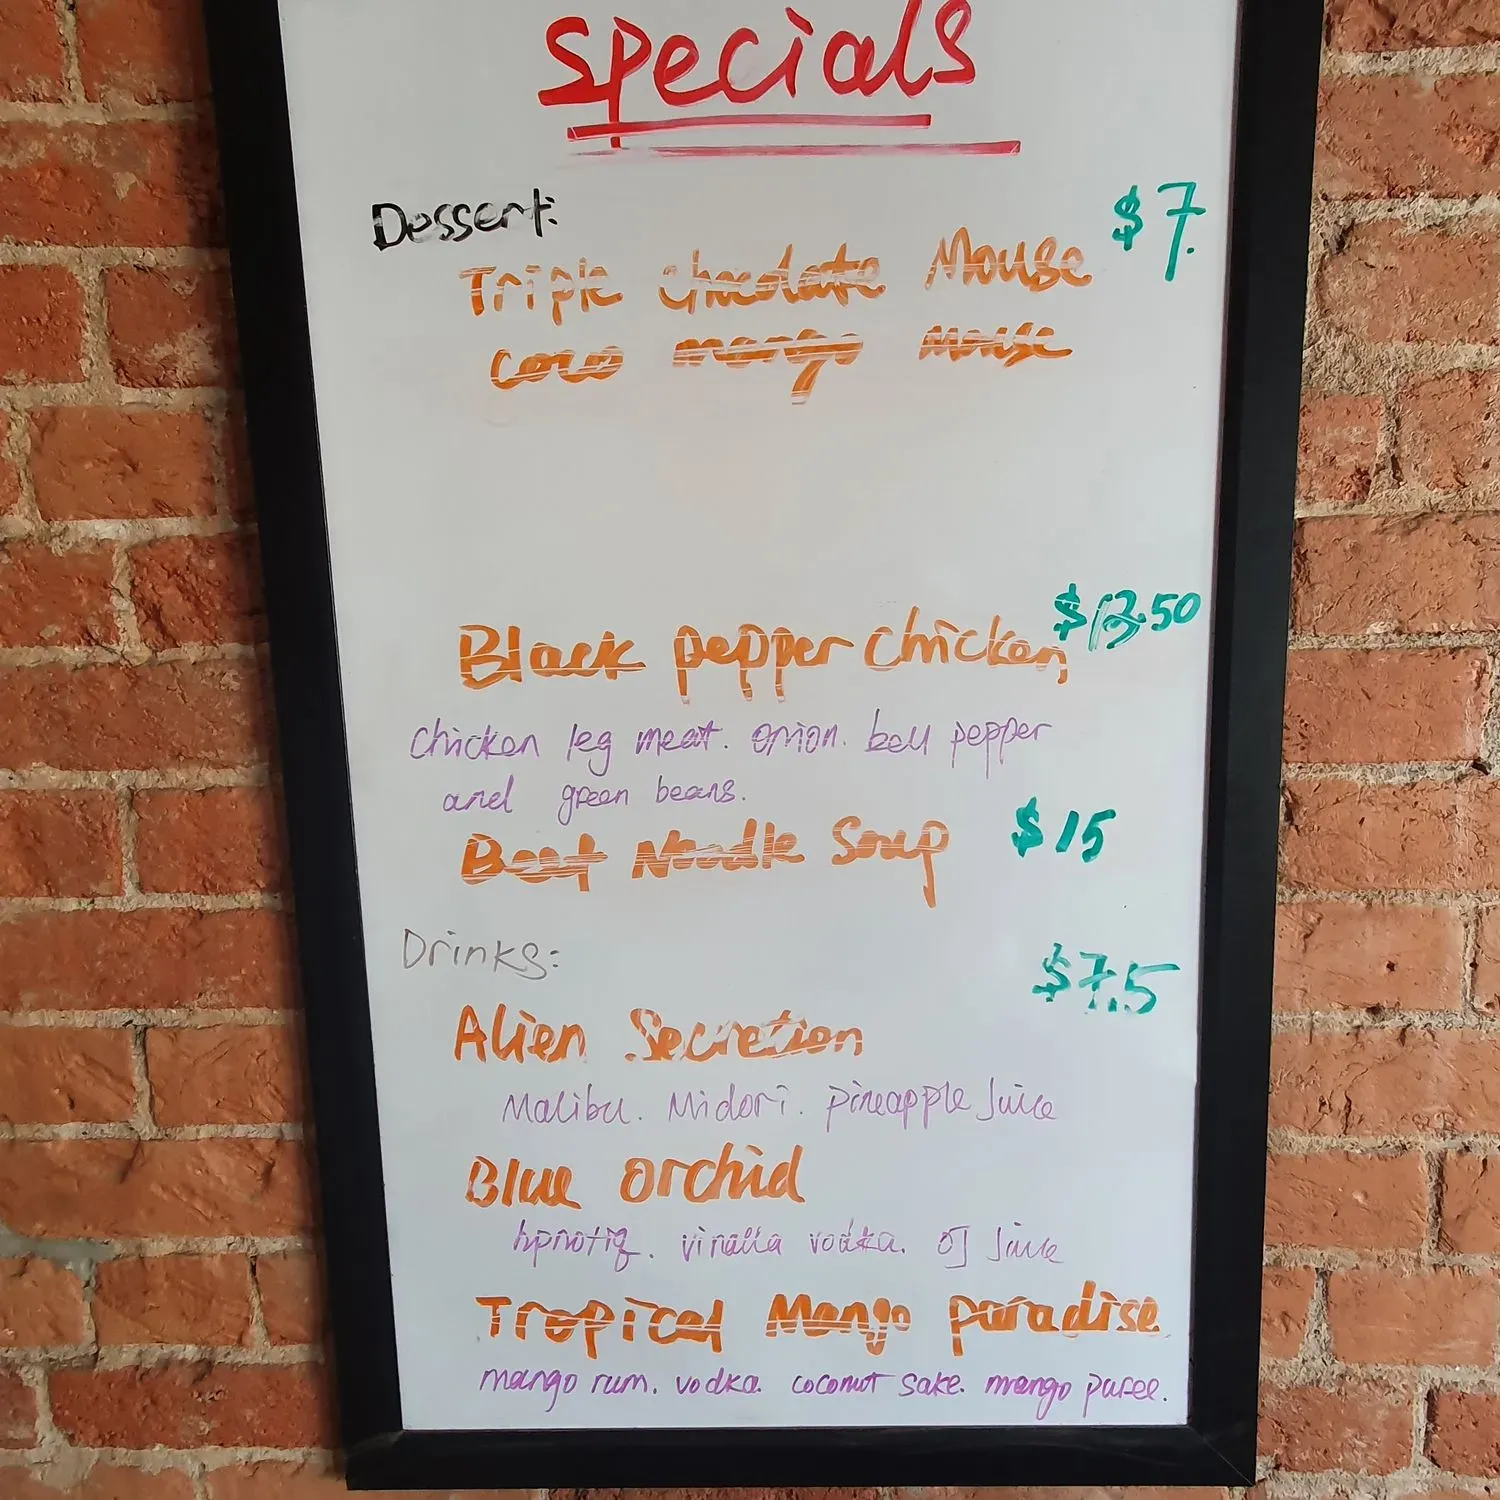 Specials
Dessert: $7.
Triple Chocolate Mouse
Coco mango mouse
Black pepper chicken $13.50
Chicken leg meat. onion. bell pepper
and green beans.
Beef Noodle Soup $15
Drinks: $7.5
Alien Secretion
Malibu. Midori. pineapple Juice
Blue orchid
hpnotiq. vinalla vodka. OJ Juice
Tropical Mango paradise
mango rum. vodka. coconut sake. mango puree.